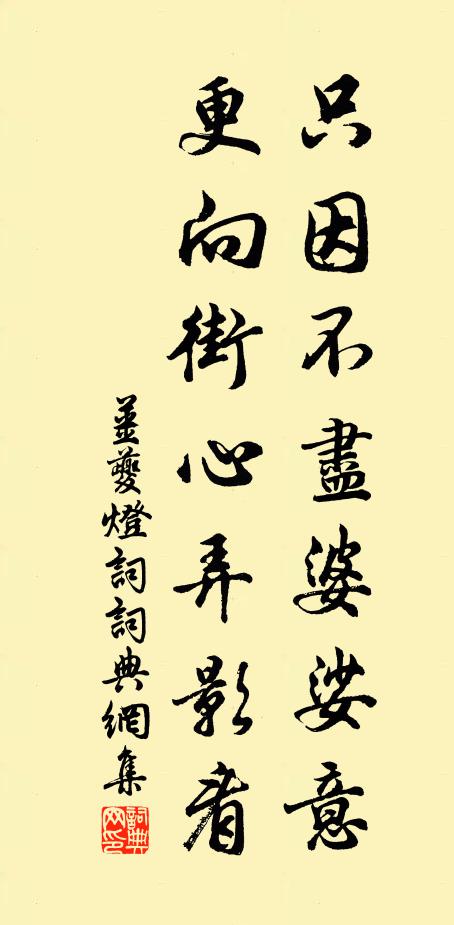 只因不盡婆娑意
更向街心弄影看
薑夔燈詞詞典網集
詞典網印